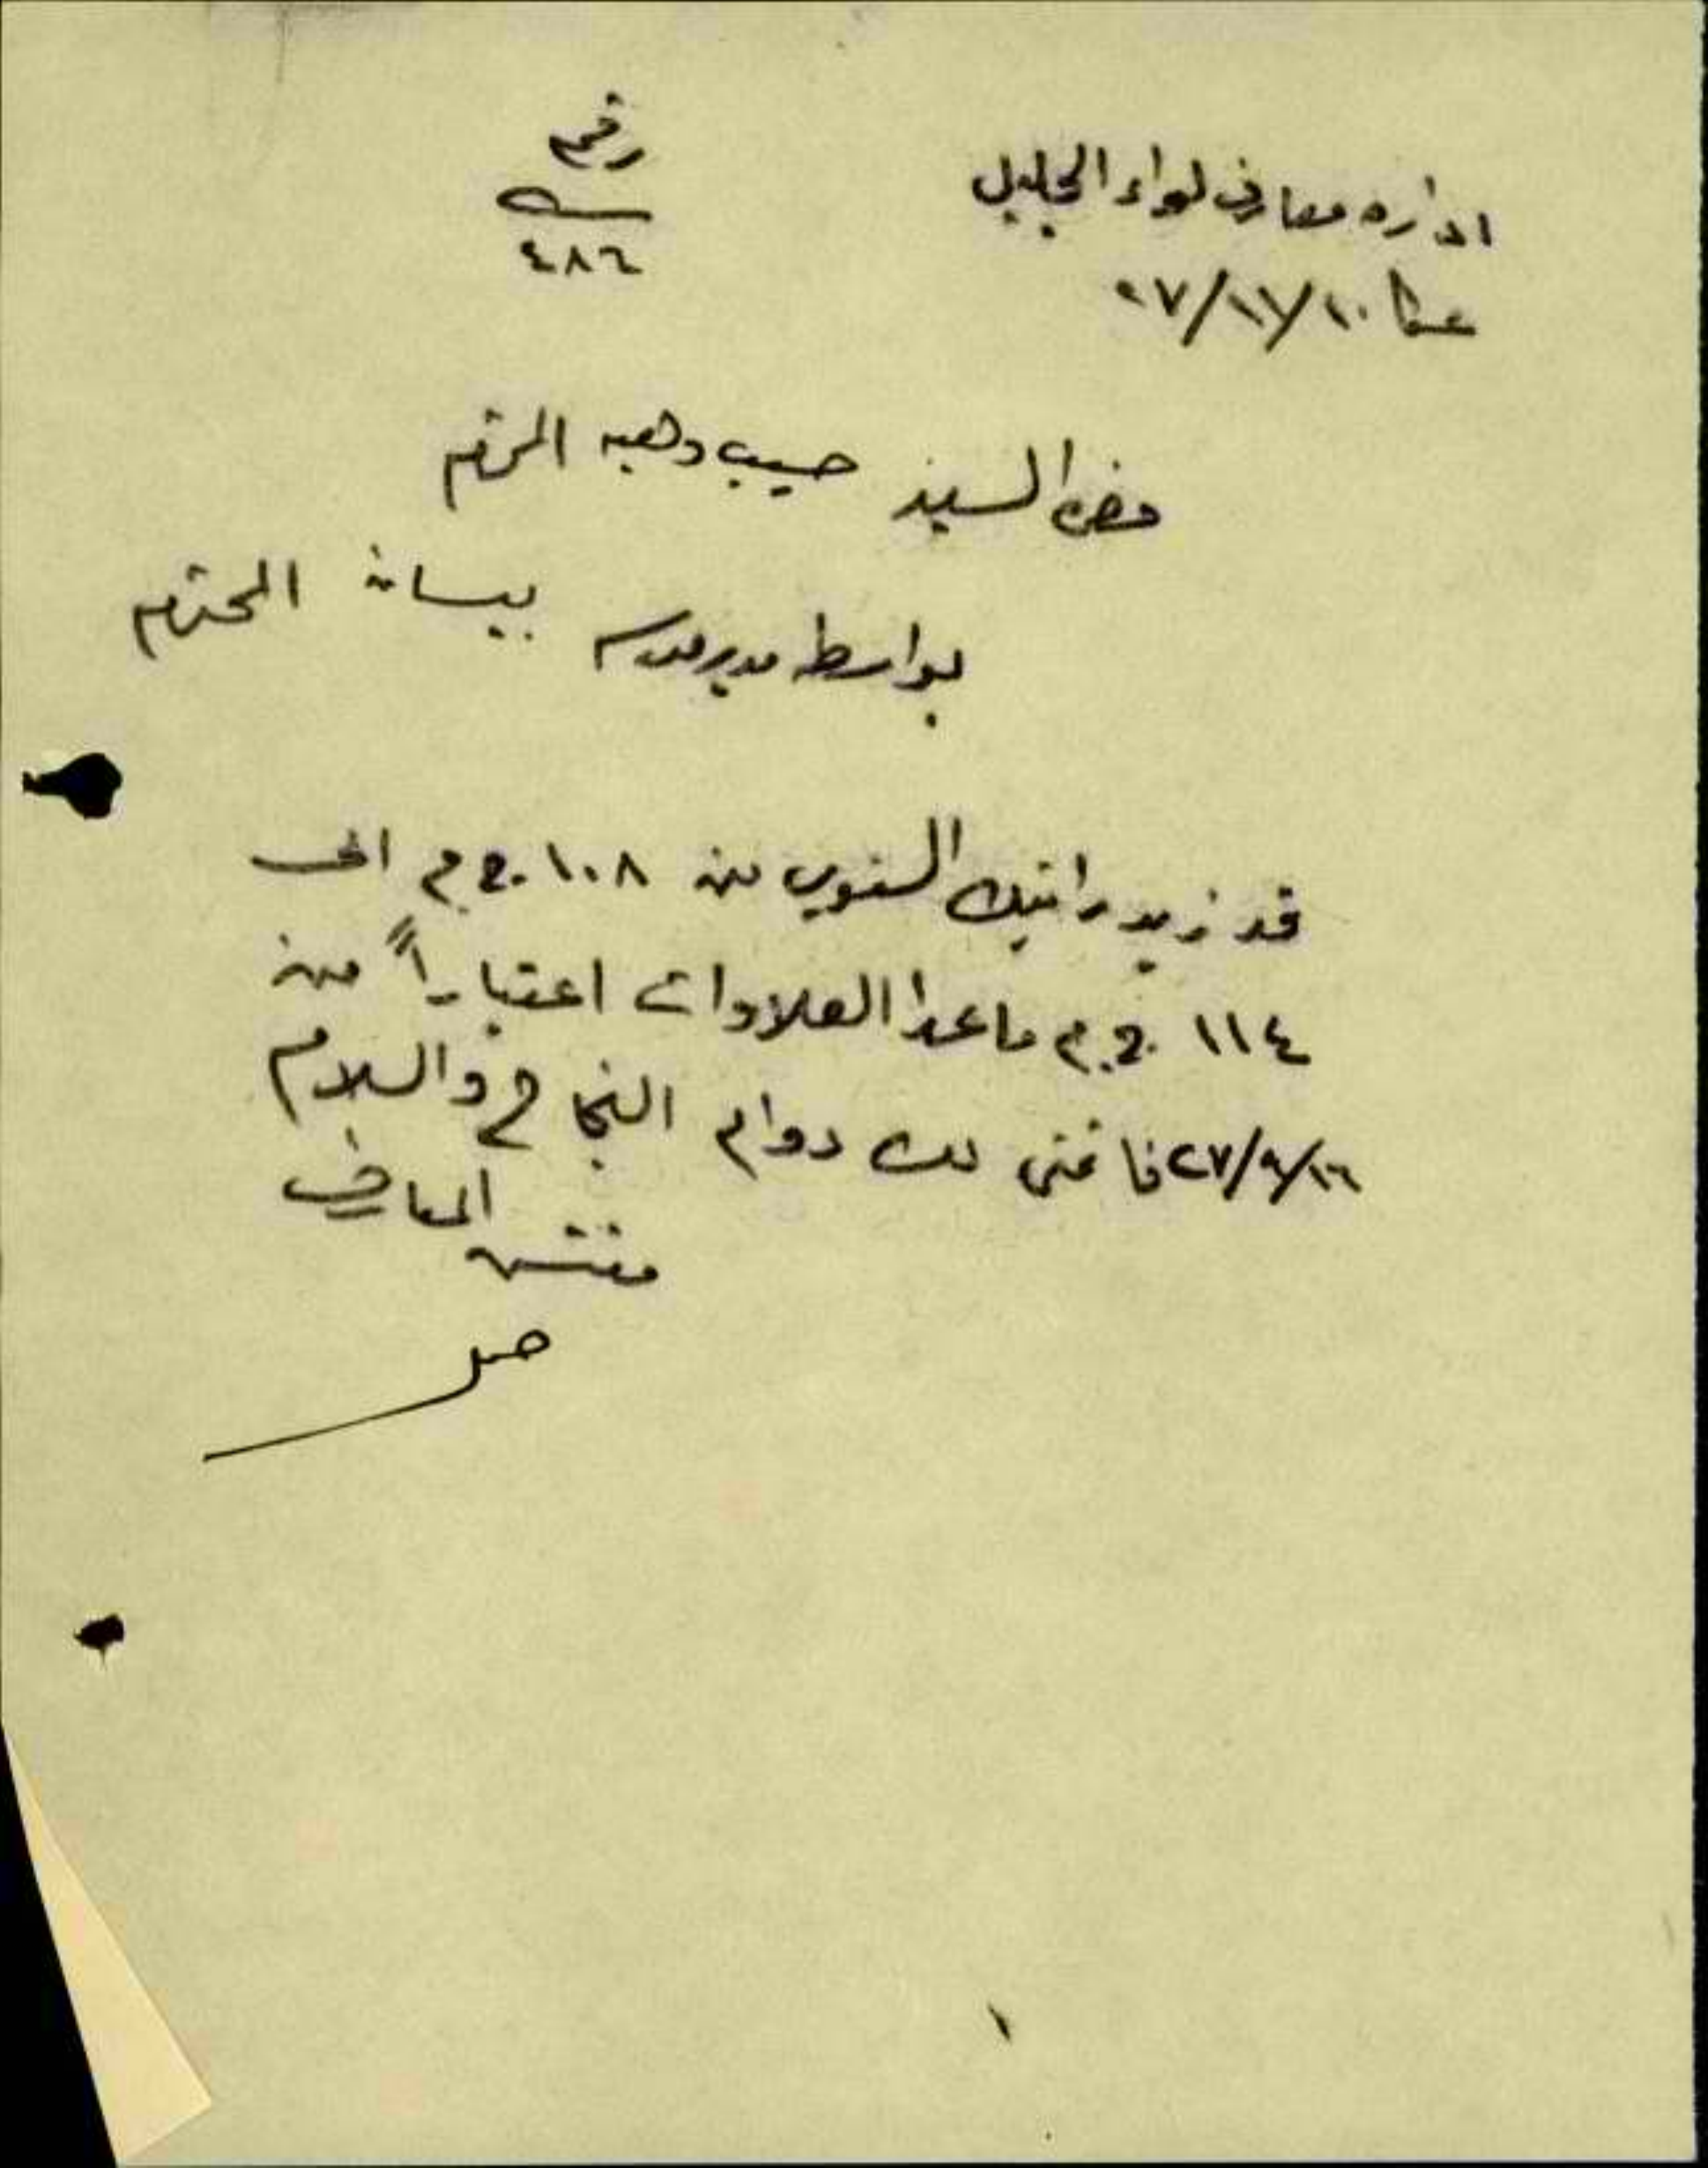 رقم
س
٤٨٦
ادارة معارف لواء الجليل
عكا ١٠/١١/٢٧
حضرة السيد حبيب وهبه المحترم
بواسطة مدير مدرسة بيسان المحترم
قد زيد راتبك السنوي من ١٠٨ ج.م الى
١١٤ ج.م ماعدا العلاوات اعتباراً من
١٦/٩/٢٧ فاتمنى لك دوام النجاح والسلام
مفتش المعارف
١